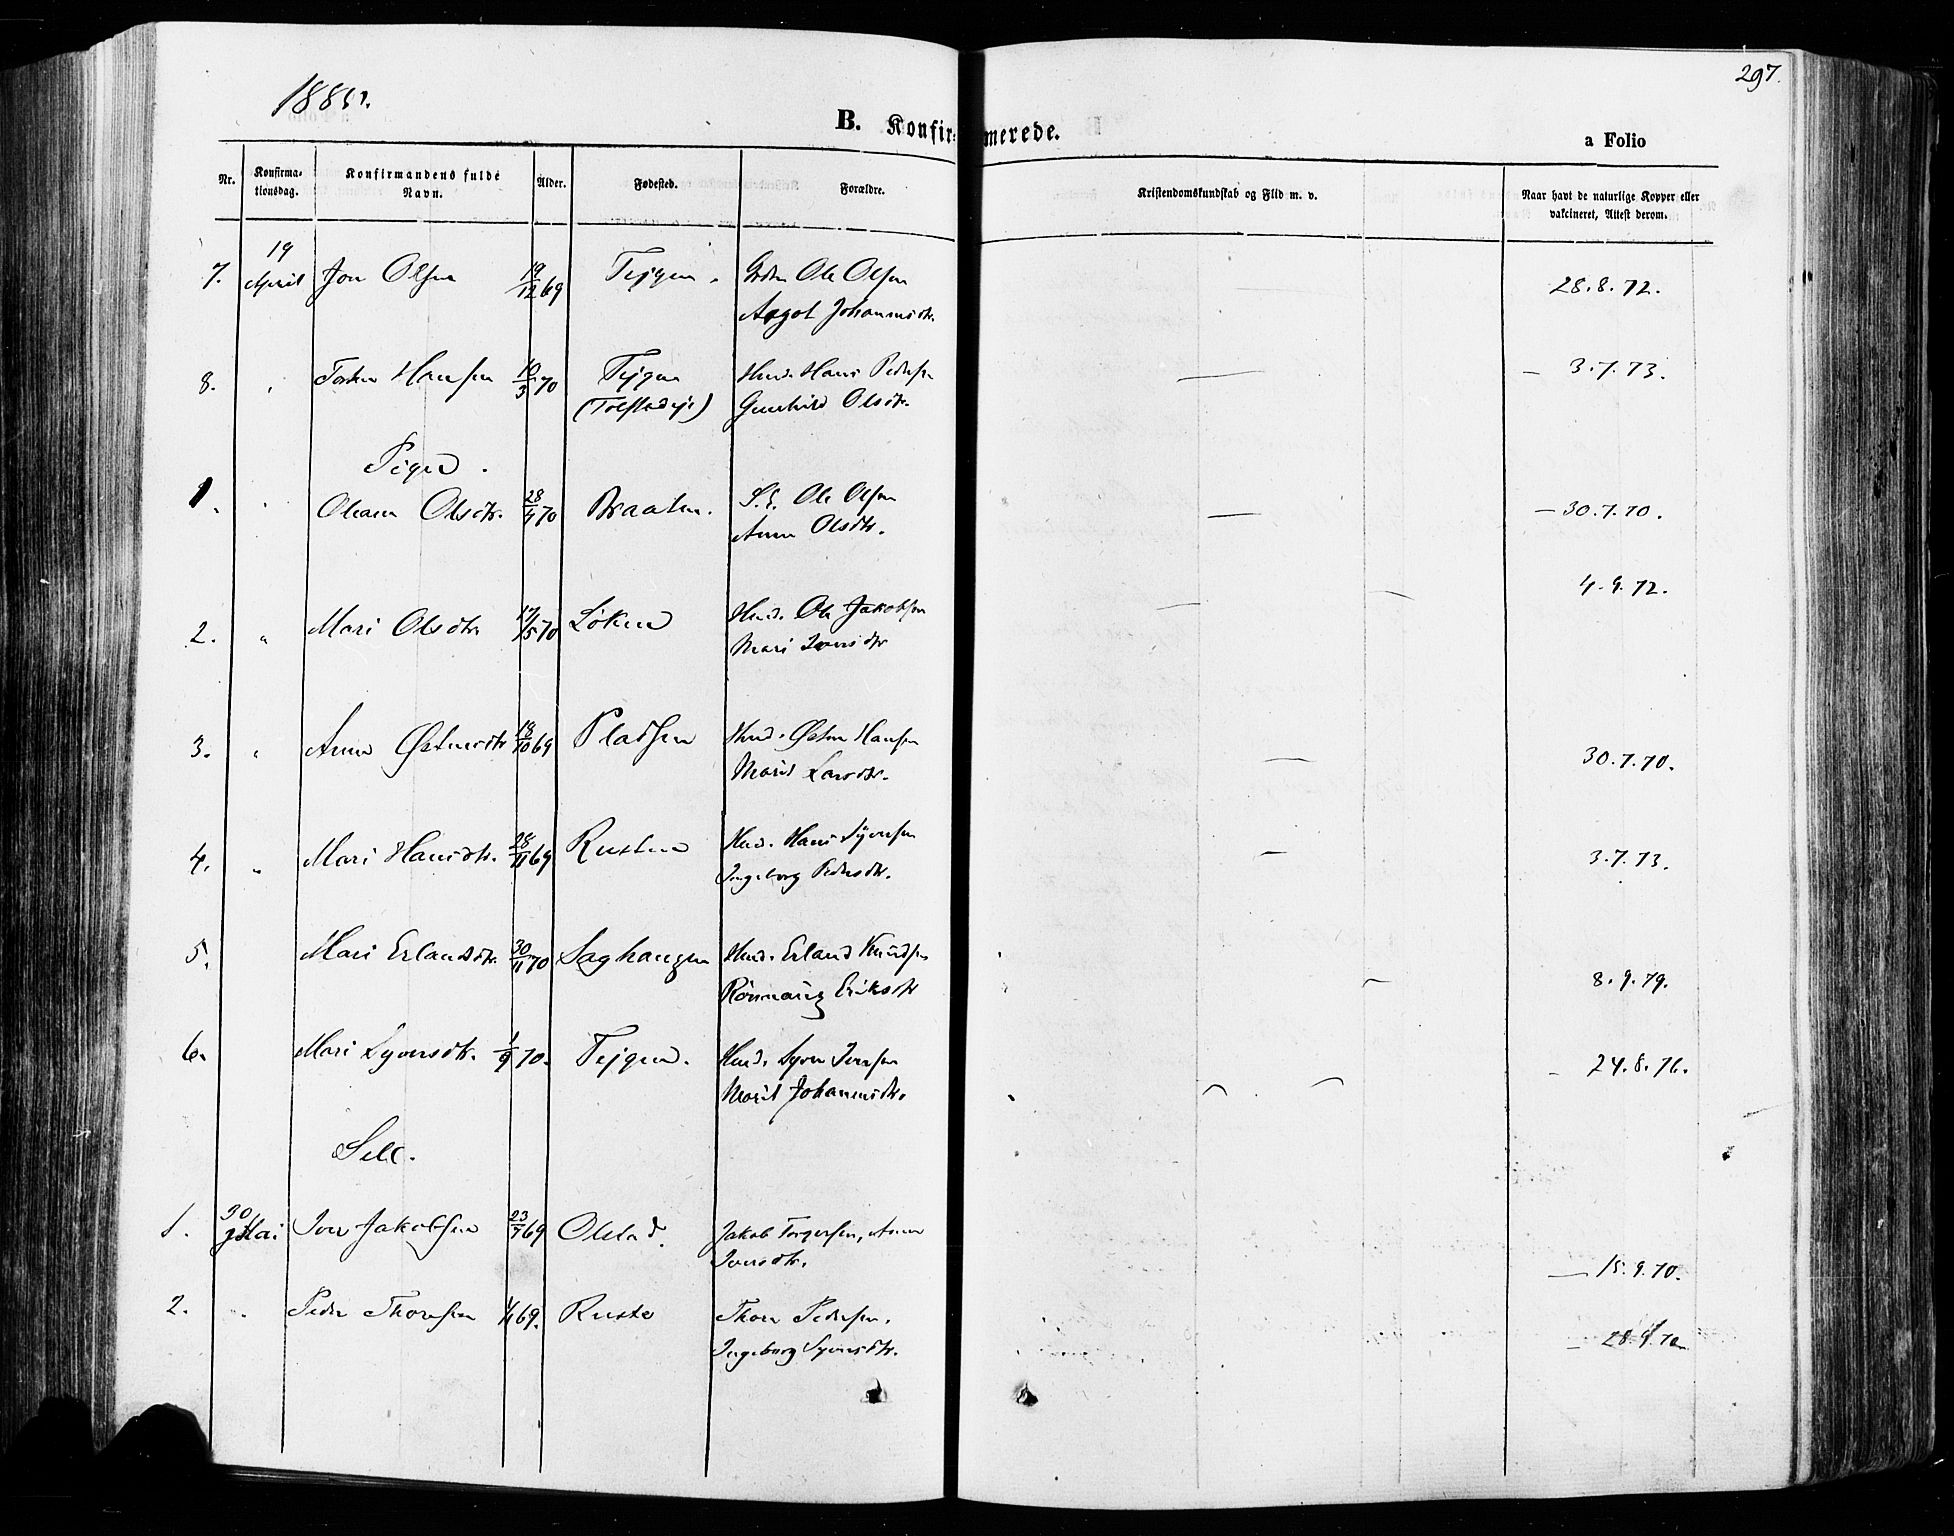 297.
B. Konfirmerede.
a Folio
Nr.
Konfirmationsdag.
Konfirmandens fulde Navn.
Alder.
Fødested.
Forældre.
Kristendomskundskab og Flid m. v.
Naar havt de naturlige Kopper eller vakcineret, Attest derom.
7. 19 April Jon Olsen 19/12 69 Tejgen. Ole Olsen 28.8.72.
Aagot Johannesdtr.
8. " Hansen 10/3 70 Tejgen Hmd. Hans Pedersen — 3.7.73.
Gunhild Olsdtr.
Piger.
1. " Olsdtr. 28/4 70 Braaten. Ole Olsen — 30.7.70.
Anne Olsdtr.
2. " Mari Olsdtr. 17/5 70 Løken Hmd. Ole Jakobsen 4.9.72.
Mari Iversdtr
3. " Anne Østensdtr 18/10 69 Pladsen Hmd. Østen Hansen 30.7.70.
Marit Larsdtr.
4. " Mari Hansdtr. 28/11 69 Rusten Hmd. Hans Syversen 3.7.73.
Ingeborg Pedersdtr.
5. Mari Erlandsdtr. 30/11 70 Saghaugen Hmd. Erland Knudsen 8.9.79.
Rønnaug Eriksdtr
6. Mari Syversdtr. 1/9 70. Tejgen. Hmd. Syver Iversen 24.8.76.
Marit Johannesdtr.
Sell.
1. 30 Mai Iver Jakobsen 23/7 69 Olstad. Jakob Torgersen, Anne
Iversdtr. — 15.9.70.
2. " Peder Thoresen 69. Ruste Thore Pedersen.
Ingeborg Syversdtr.